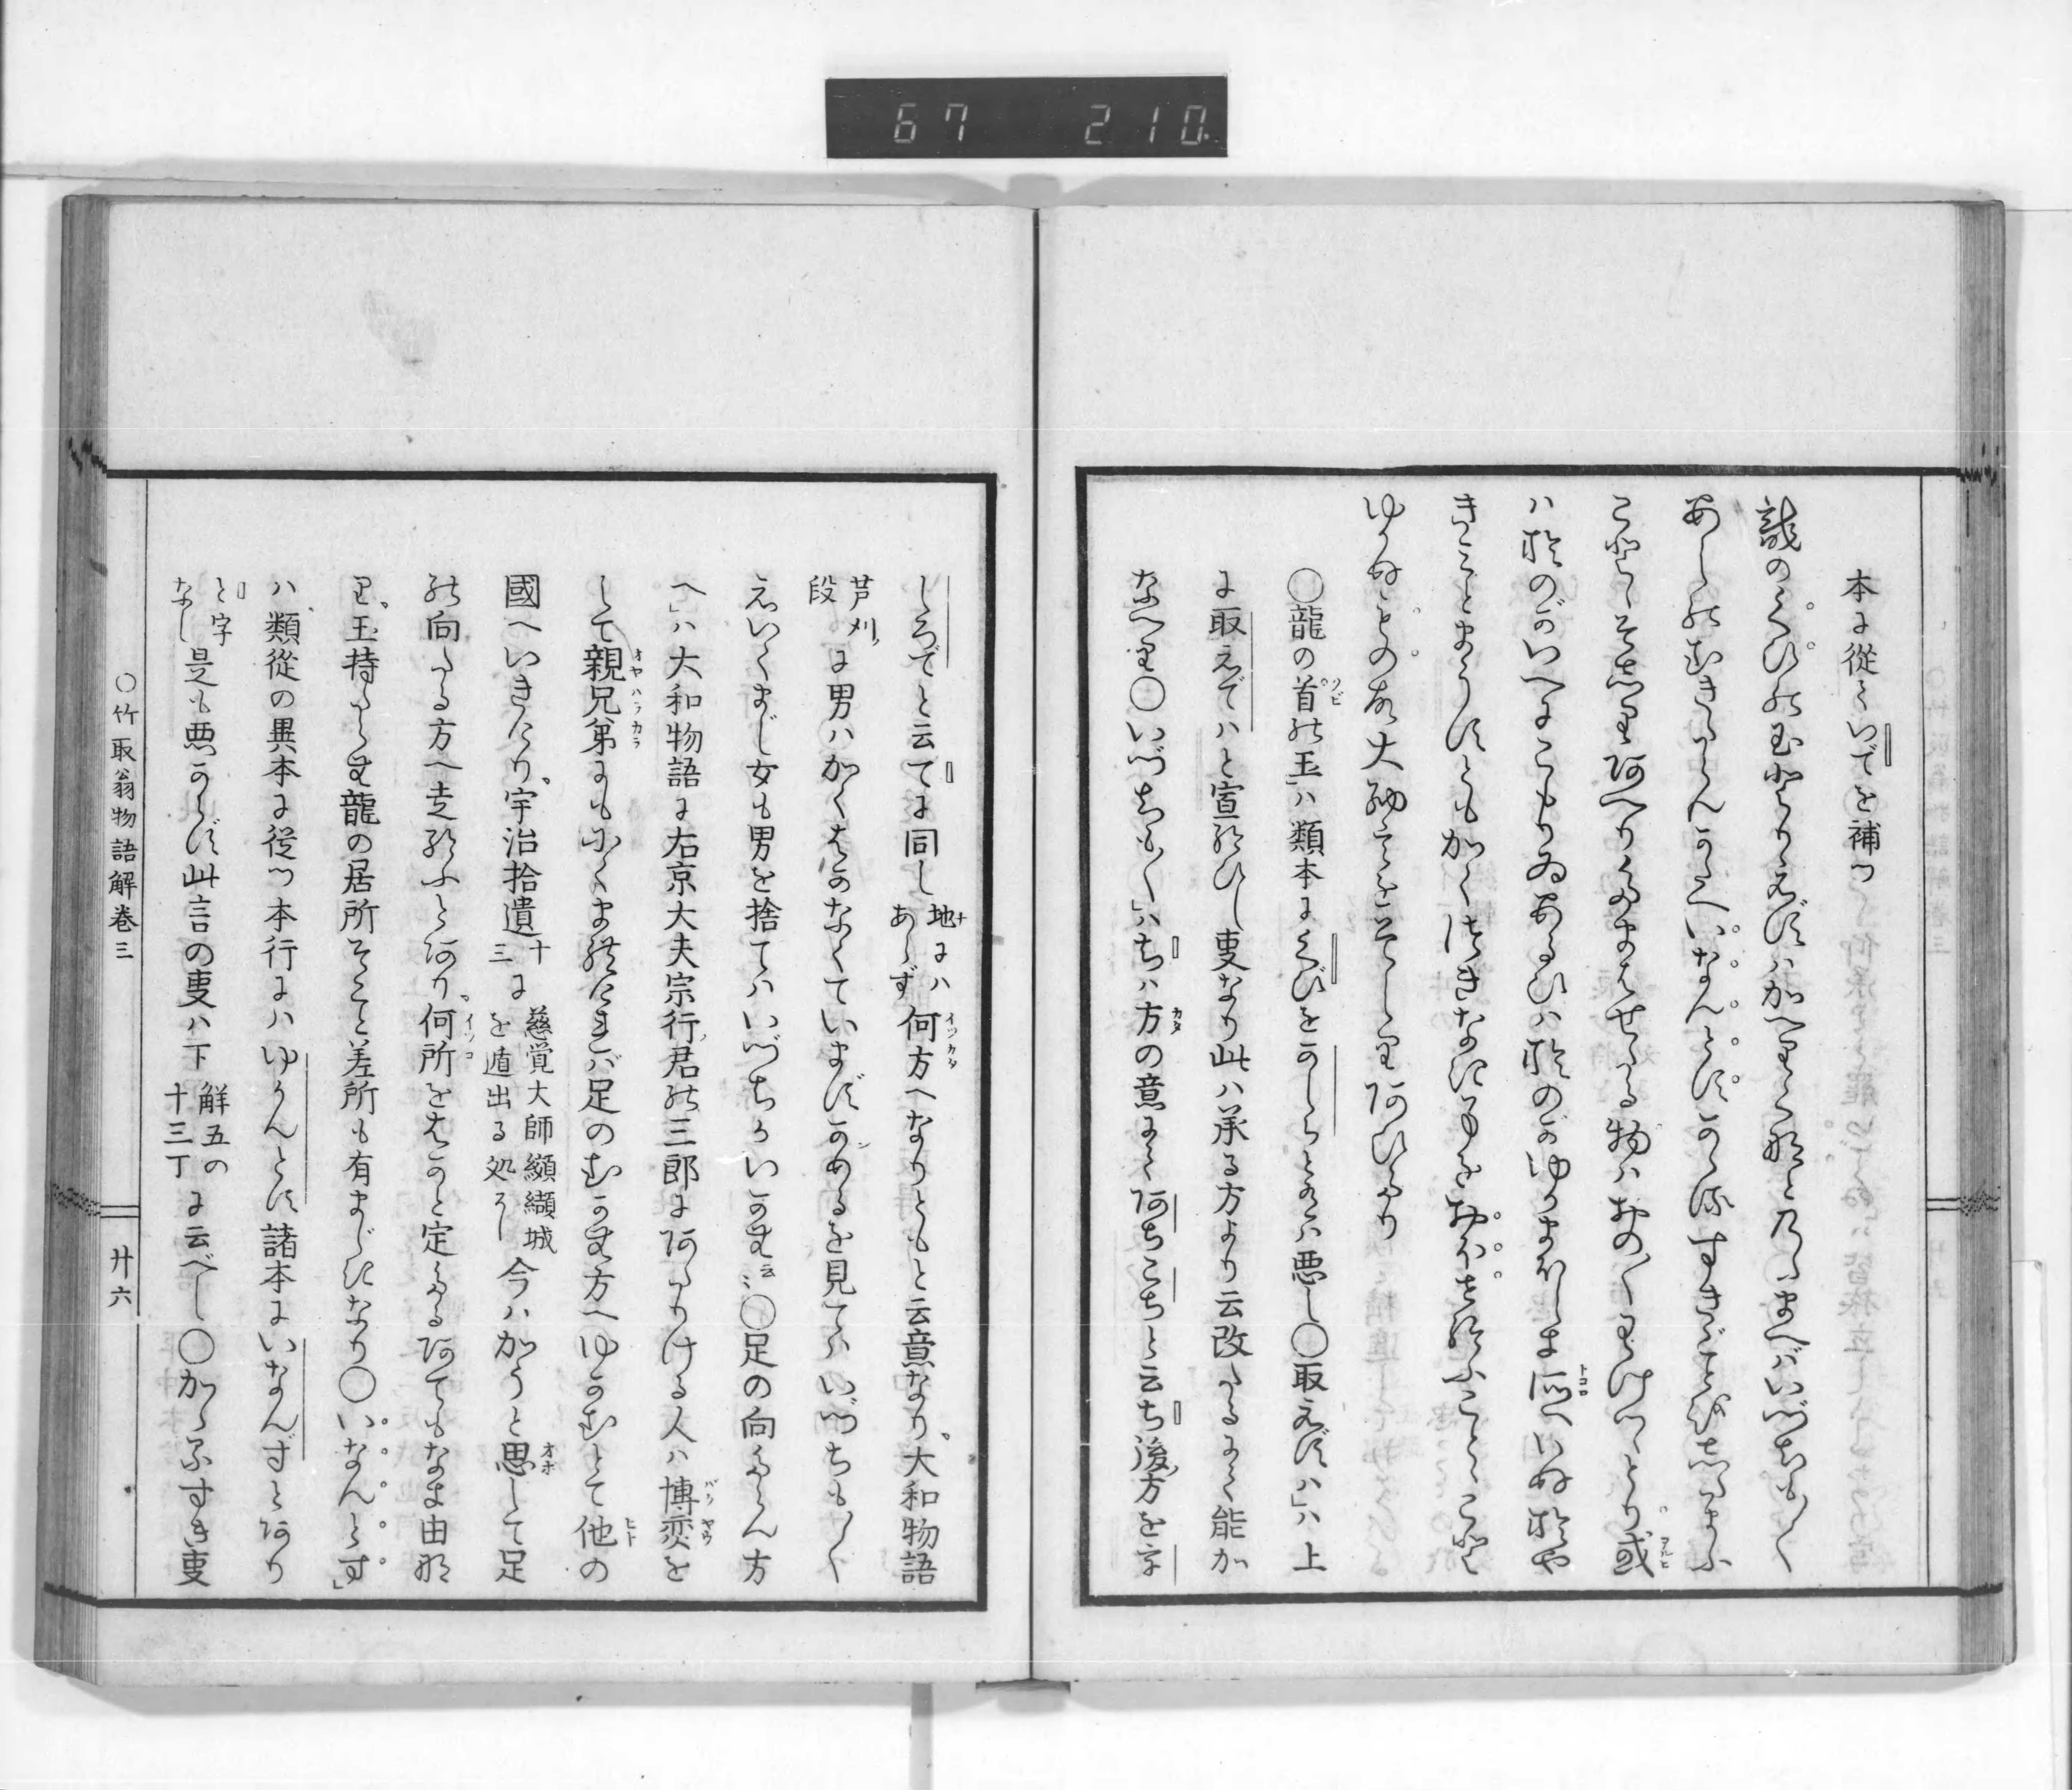 67 210
本に從ていでを補つ
龍のくびの玉とりえずはかへりくなとのたまへばいづちも〳〵
あしのむきたらんかたへいなんとすかゝるすきごとをしたまふ
ことゝそしりあへりたまはせたる物はおの〳〵わけつゝとり或
ハおのがいへにこもりゐあるひハおのがゆかまほしき所へいぬおや
きみとまうすともかくつきなきことをおほせ給ふことゝこと
ゆかぬものゆゑ大納言をそしりあひたり
〇龍の首の玉」ハ類本にくびをかしらとあるハ悪し〇取えずハ」ハ上
に取えでハと宣給ひし叓なり此ハ承る方より云改たるにて能か
なへり〇いづちも〳〵」ハちハ方の意にてあちこちと云ち後方を
しろでと云てに同し地にハあらず何方へなりともと云意なり、大和物語
芦刈段に男ハかくはかなくていますかめるを見てハいづちも〳〵
えいくまじ女も男を捨てハいづちかいかむ云〻〇足の向たらん方
へ」ハ大和物語に右京大夫宗行君の三郎にあたりける人ハ博奕を
して親兄弟にもにくまれにければ足のむかむ方へゆかむとて他の
國へいきけり、宇治拾遺十三に慈覚大師纐纈城を遁出る処かし今ハかうと思して足
の向たる方へ走給ふとあり、何所をはかと定たるあてもなき由な
り、玉持たらむ龍の居所そこと差所も有まじきなり〇いなんとす」
ハ類從の異本に從つ本行にハゆかんとす諸本にいなんずとあり
と字なし是も悪からず此言の叓ハ下解五の十三丁に云べし〇かゝるすき叓
〇竹取翁物語解巻三
廾六